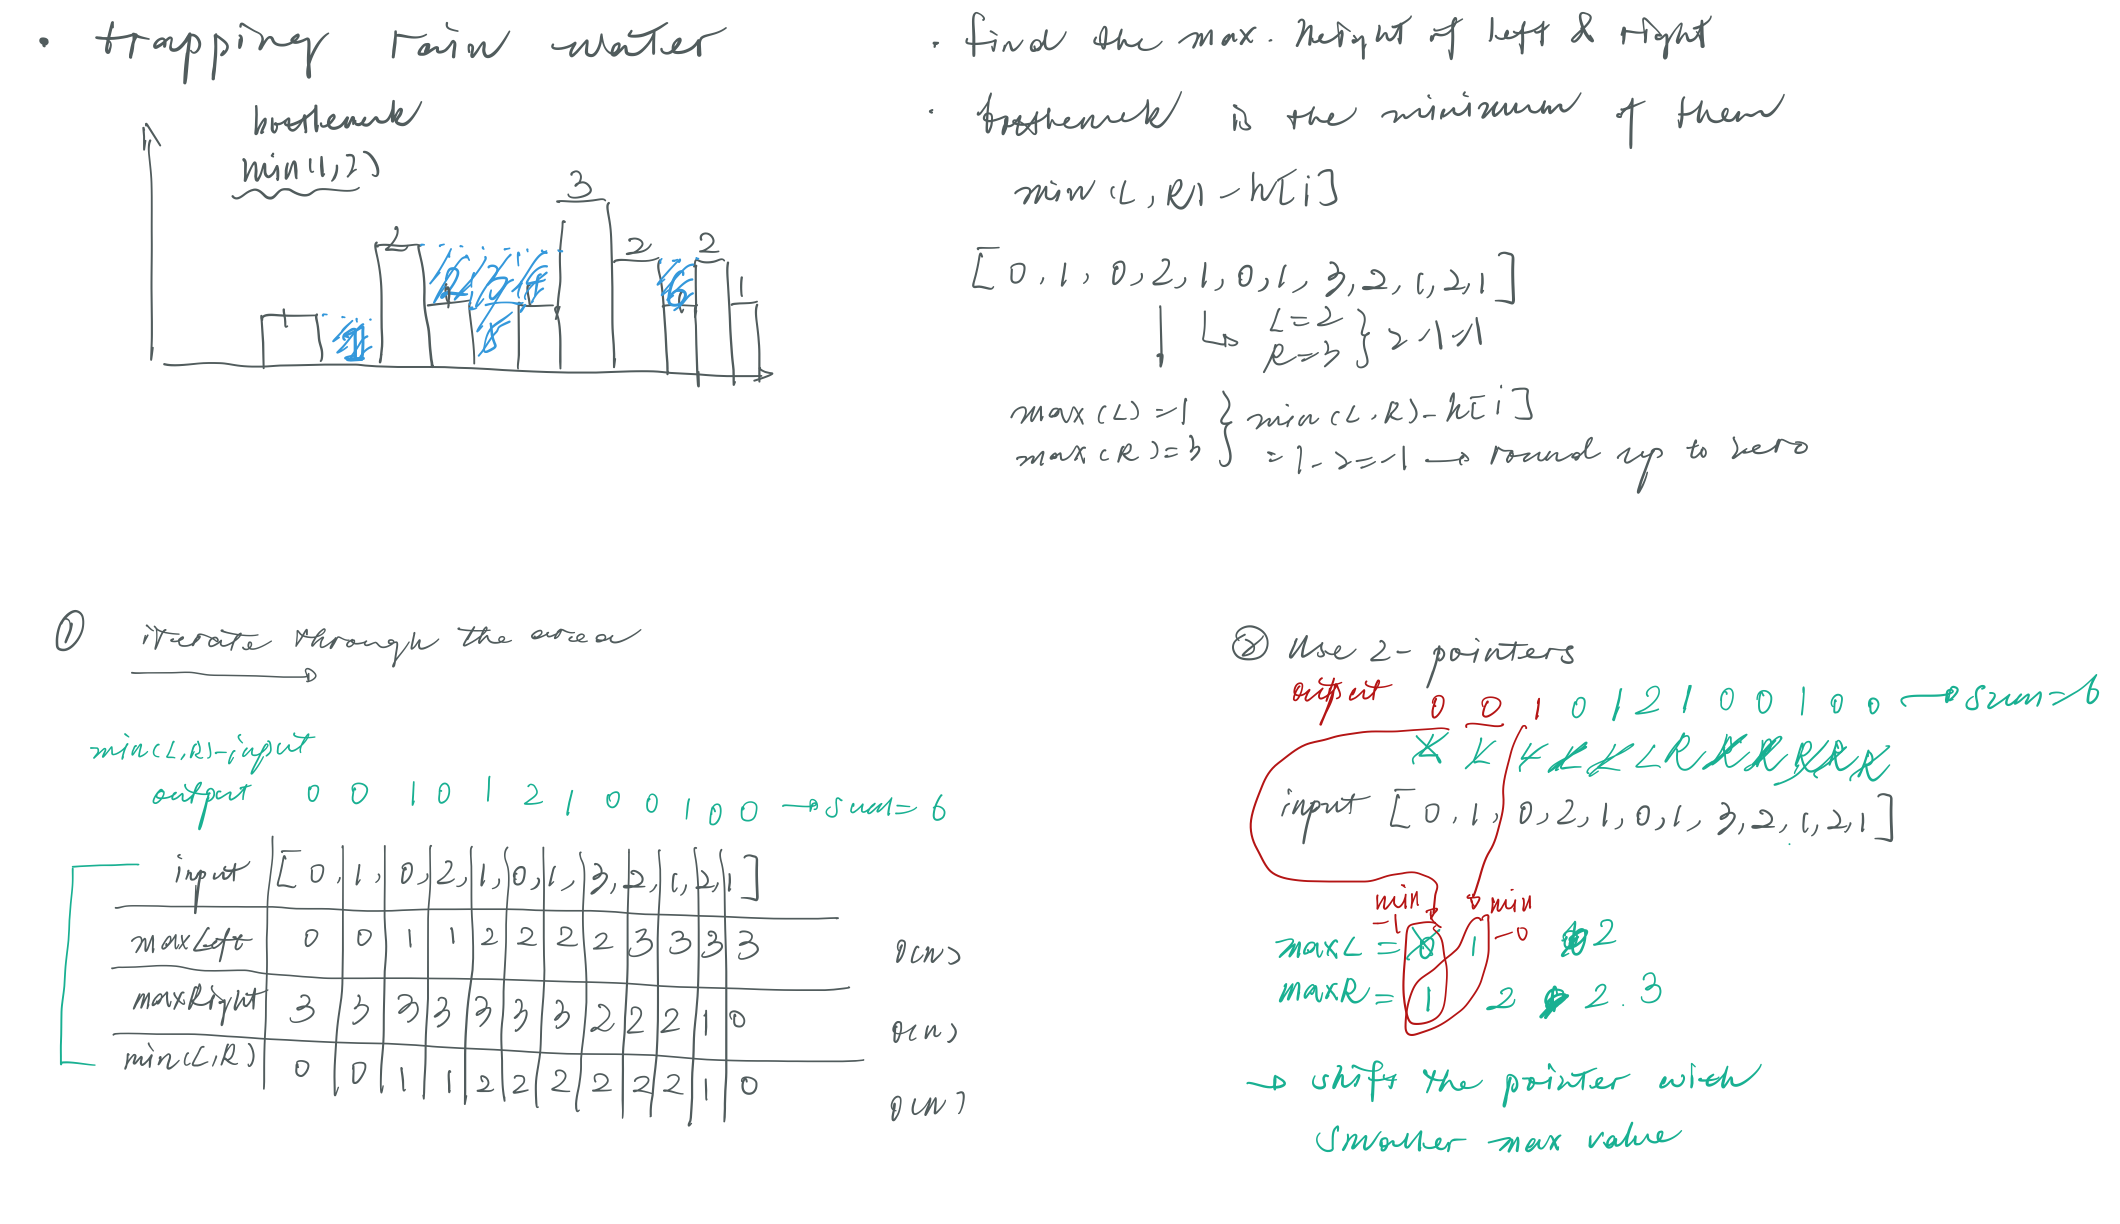 • trapping rain water
bottleneck
min(1,2)
1 1 2 1 2 3 5 4 3 2 6 2 1
• find the max. height of left & right
• bottleneck is the minimum of them
min(L,R) - h[i]
[0,1,0,2,1,0,1,3,2,1,2,1]
L=2
R=3 } 2-1=1
max(L)=1 } min(L,R)-h[i]
max(R)=3 } =1-2=-1 → round up to zero
① iterate through the area
min(L,R)-input
output 0 0 1 0 1 2 1 0 0 1 0 0 → sum=6
input [0,1,0,2,1,0,1,3,2,1,2,1]
maxLeft 0 0 1 1 2 2 2 2 3 3 3 3 O(n)
maxRight 3 3 3 3 3 3 3 2 2 2 1 0 O(n)
min(L,R) 0 0 1 1 2 2 2 2 2 2 1 0 O(n)
② Use 2-pointers
output 0 0 1 0 1 2 1 0 0 1 0 0 → sum=6
L L L L L L R R R R R R
input [0,1,0,2,1,0,1,3,2,1,2,1]
min -1 min -0
maxL = 0 1 2
maxR = 1 2 2 . 3
→ shift the pointer with
smaller max value